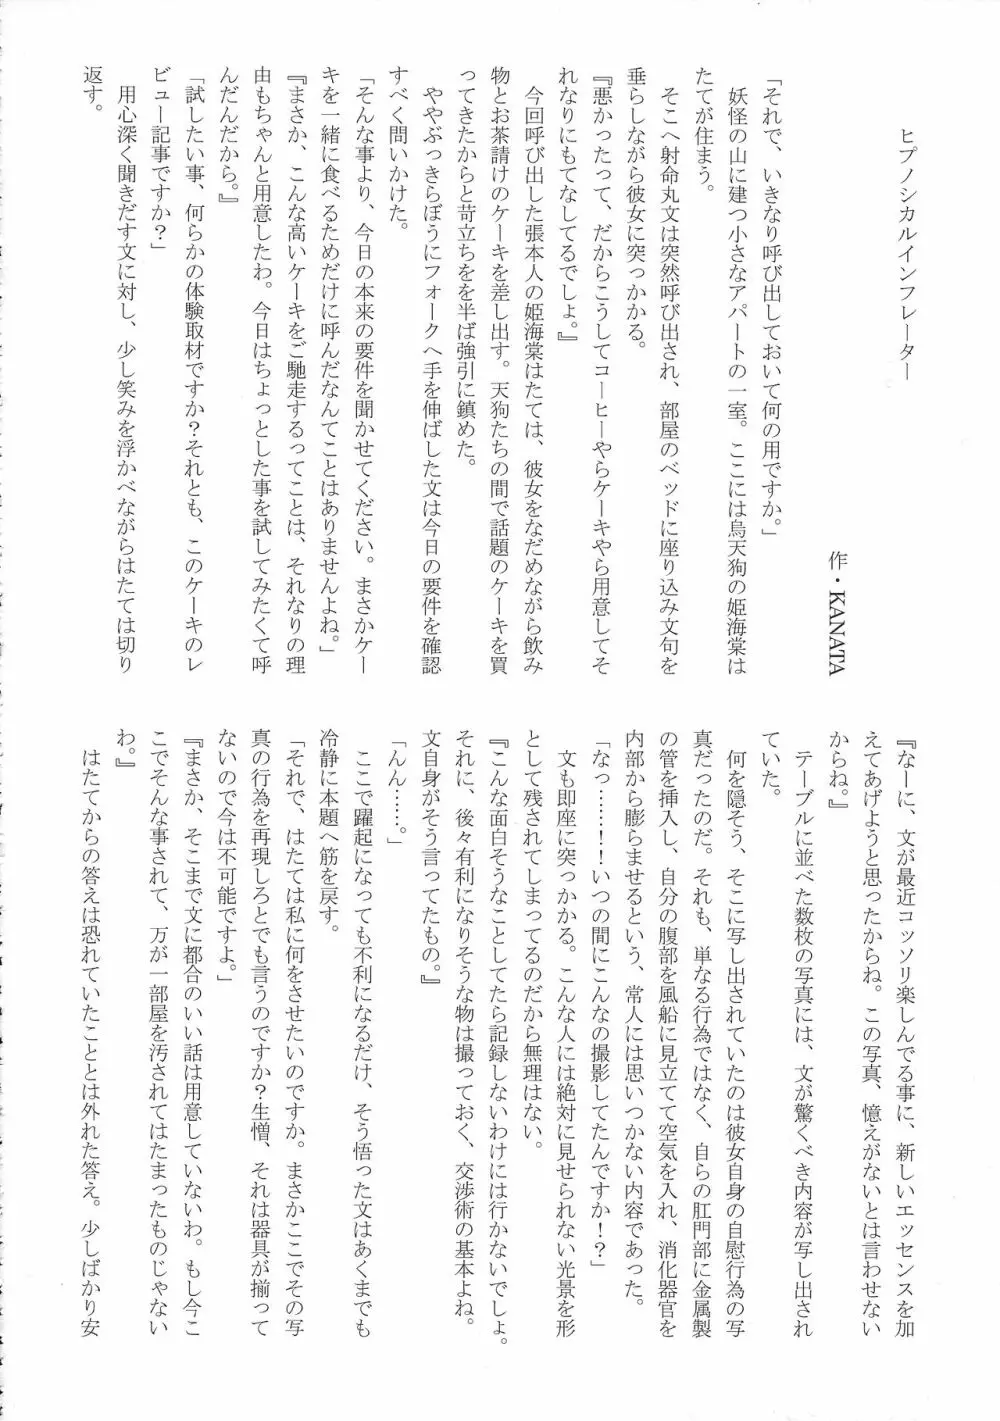 ヒプノシカルインフレーター
作・KANATA
「それで、いきなり呼び出しておいて何の用ですか。」
　妖怪の山に建つ小さなアパートの一室。ここには烏天狗の姫海棠は
たてが住まう。
　そこへ射命丸文は突然呼び出され、部屋のベッドに座り込み文句を
垂らしながら彼女に突っかかる。
『悪かったって、だからこうしてコーヒーやらケーキやら用意してそ
れなりにもてなしてるでしょ。』
　今回呼び出した張本人の姫海棠はたては、彼女をなだめながら飲み
物とお茶請けのケーキを差し出す。天狗たちの間で話題のケーキを買
ってきたからと苛立ちをを半ば強引に鎮めた。
　ややぶっきらぼうにフォークへ手を伸ばした文は今日の要件を確認
すべく問いかけた。
「そんな事より、今日の本来の要件を聞かせてください。まさかケー
キを一緒に食べるためだけに呼んだなんてことはありませんよね。」
『まさか、こんな高いケーキをご馳走するってことは、それなりの理
由もちゃんと用意したわ。今日はちょっとした事を試してみたくて呼
んだんだから。』
「試したい事、何らかの体験取材ですか？それとも、このケーキのレ
ビュー記事ですか？」
　用心深く聞きだす文に対し、少し笑みを浮かべながらはたては切り
返す。
『なーに、文が最近コッソリ楽しんでる事に、新しいエッセンスを加
えてあげようと思ったからね。この写真、憶えがないとは言わせない
からね。』
　テーブルに並べた数枚の写真には、文が驚くべき内容が写し出され
ていた。
　何を隠そう、そこに写し出されていたのは彼女自身の自慰行為の写
真だったのだ。それも、単なる行為ではなく、自らの肛門部に金属製
の管を挿入し、自分の腹部を風船に見立てて空気を入れ、消化器官を
内部から膨らませるという、常人には思いつかない内容であった。
「なっ……！！いつの間にこんなの撮影してたんですか！？」
　文も即座に突っかかる。こんな人には絶対に見せられない光景を形
として残されてしまってるのだから無理はない。
『こんな面白そうなことしてたら記録しないわけには行かないでしょ。
それに、後々有利になりそうな物は撮っておく、交渉術の基本よね。
文自身がそう言ってたもの。』
「んん……。」
　ここで躍起になっても不利になるだけ、そう悟った文はあくまでも
冷静に本題へ筋を戻す。
「それで、はたては私に何をさせたいのですか。まさかここでその写
真の行為を再現しろとでも言うのですか？生憎、それは器具が揃って
ないので今は不可能ですよ。」
『まさか、そこまで文に都合のいい話は用意していないわ。もし今こ
こでそんな事されて、万が一部屋を汚されてはたまったものじゃない
わ。』
　はたてからの答えは恐れていたこととは外れた答え。少しばかり安